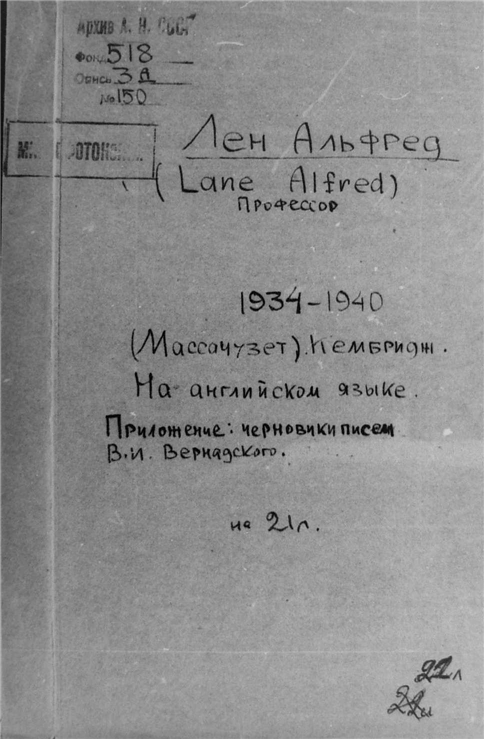 Архив А. Н. СССР
Фонд 518
Опись 3Д
№ 150
Лен Альфред
(Lane Alfred)
Профессор
1934-1940
(Массачузет). Кембридж.
На английском языке.
Приложение: черновики писем
В.И. Вернадского.
на 21л.
22л